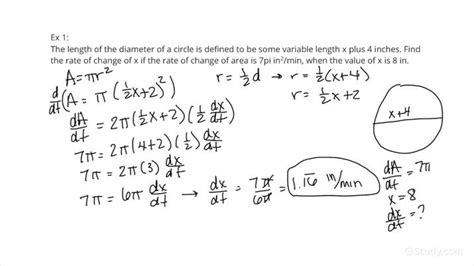 Ex 1:
The length of the diameter of a circle is defined to be some variable length x plus 4 inches. Find
the rate of change of x if the rate of change of area is 7pi in²/min, when the value of x is 8 in.
A=πr²
r=½d → r=½(x+4)
r=½x+2
d/dt(A=π(½x+2)²
dA/dt=2π(½x+2)(½ dx/dt)
7π=2π(4+2)(½)dx/dt
7π=2π(3) dx/dt
7π=6π dx/dt → dx/dt = 7π/6π = 1.1̅6̅ in/min
x+4
dA/dt=7π
x=8
dx/dt=?
Study.com